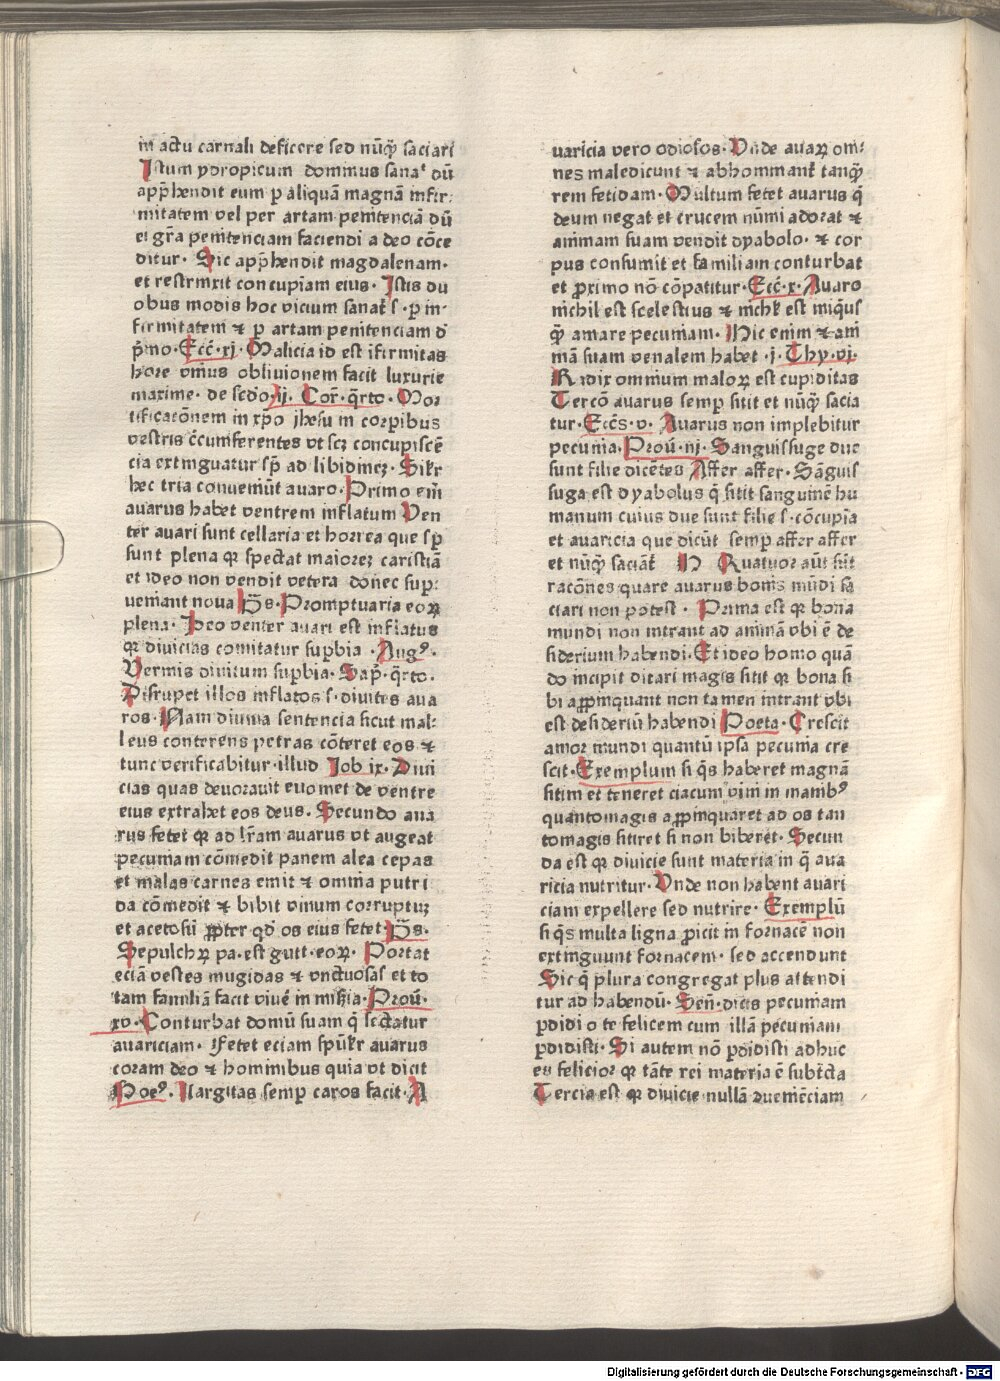 in actu carnali deficere sed nūq̄ȝ saciari
Istum ydropicum dominus sanat dū
app̄hendit eum p aliquā magnā infir-
mitatem vel per artam penitenciā dū
ei gr̄a penitenciam faciendi a deo cōce
ditur· Sic app̄hendit magdalenam·
et restrinxit concupiam eius· Istis du
obus modis hoc vicium sanat̄ s· p in-
firmitatem ⁊ p artam penitenciam d̄
p̄mo· Ecc̄· xj· Malicia id est ifirmitas
hore vnius obliuionem facit luxurie
maxime· de sc̄do· ij· Cor̄· q̄rto· Mor
tificac̄onem in xp̄o jhesu in corpibus
vestris c̄cumferentes vt scȝ concupiscē
cia extinguatur sp̄ ad libidineȝ· Silr̄
hec tria conueniūt auaro· Primo em̄
auarus habet ventrem inflatum Ven
ter auari sunt cellaria et horrea que sp̄
sunt plena qꝛ spectat maiorez caristiā
et ideo non vendit vetera donec sup-
veniant noua P̄s· Promptuaria eoꝝ
plena· Ideo venter auari est inflatus
qꝛ diuicias comitatur supbia· Augꝰ·
Vermis diuitum supbia· Sap̄· q̄rto·
Disrupet illos inflatos s· diuites aua
ros· Nam diuina sentencia sicut mal-
leus conterens petras cōteret eos ⁊
tunc verificabitur illud Iob ix· Diui
cias quas deuorauit euomet de ventre
eius extrahet eos deus· Secundo aua
rus fetet qꝛ ad lr̄am auarus vt augeat
pecuniam cōmedit panem alea cepas
et malas carnes emit ⁊ omnia putri
da cōmedit ⁊ bibit vinum corruptuȝ
et acetosū ꝓpter qd̄ os eius fetet· P̄s·
Sepulchꝝ pa· est gutt· eoꝝ· Portat
eciā vestes mugidas ⁊ vnctuosas et to
tam familiā facit viuē in miseria· Prou̅·
xv· Conturbat domū suam q̄ sectatur
auariciam· Fetet eciam sp̄uȧlr auarus
coram deo ⁊ hominibus quia vt dicit
Poeꝰ· Largitas semp caros facit· A
uaricia vero odiosos· Vnde auaꝝ om-
nes maledicunt ⁊ abhominant̄ tanq̄ȝ
rem fetidam· Multum fetet auarus q̄
deum negat et crucem nūmi adorat ⁊
animam suam vendit dyabolo· ⁊ cor
pus consumit et familiam conturbat
et proximo nō cōpatitur· Ecc̄· x· Auaro
nichil est scelestius ⁊ nichil est iniq̄us
q̄ȝ amare pecuniam· Hic enim ⁊ ani
mā suam venalem habet· j· Thy· vj·
Radix omnium maloꝝ est cupiditas
Tercō auarus semp sitit et nūq̄ȝ sacia
tur· Ecc̄s· v· Auarus non implebitur
pecunia· Prou̅· nj· Sanguissuge due
sunt filie dicētes Affer affer· Sāguis
suga est dyabolus q̄ sitit sanguinē hu
manum cuius due sunt filie s· cōcupīa
et auaricia que dicūt semp affer affer
et nūq̄ȝ saciāt̄ N Quatuor aūt sūt
racōnes quare auarus bonis mūdi sa
ciari non potest· Prima est qꝛ bona
mundi non intrant ad animā vbi ē de
siderium habendi· Et ideo homo quā
do incipit ditari magis sitit qꝛ bona si
bi appinquant non tamen intrant vbi
est desideriū habendi Poeta· Crescit
amor mundi quantū ipsa pecunia cre
scit· Exemplum si q̄s haberet magnā
sitim et teneret ciacum vini in manibꝰ
quantomagis appinquaret ad os tan
tomagis sitiret si non biberet· Secun
da est qꝛ diuicie sunt materia in q̄ aua
ricia nutritur· Vnde non habent auari
ciam expellere sed nutrire· Exemplū
si q̄s multa ligna proicit in fornacē non
extinguunt fornacem· sed accendunt
Sic q̄ plura congregat plus attendi
tur ad habendū· Sen̄· dicis pecuniam
pdidi o te felicem cum illā pecuniam
pdidisti· Si autem nō pdidisti adhuc
es felicior qꝛ tāte rei materia ē subtc̄ta
Tercia est qꝛ diuicie nullā duenīēciam
Digitalisierung gefördert durch die Deutsche Forschungsgemeinschaft - DFG